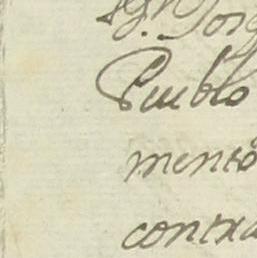 Jorg
Pueblo
mento
contra